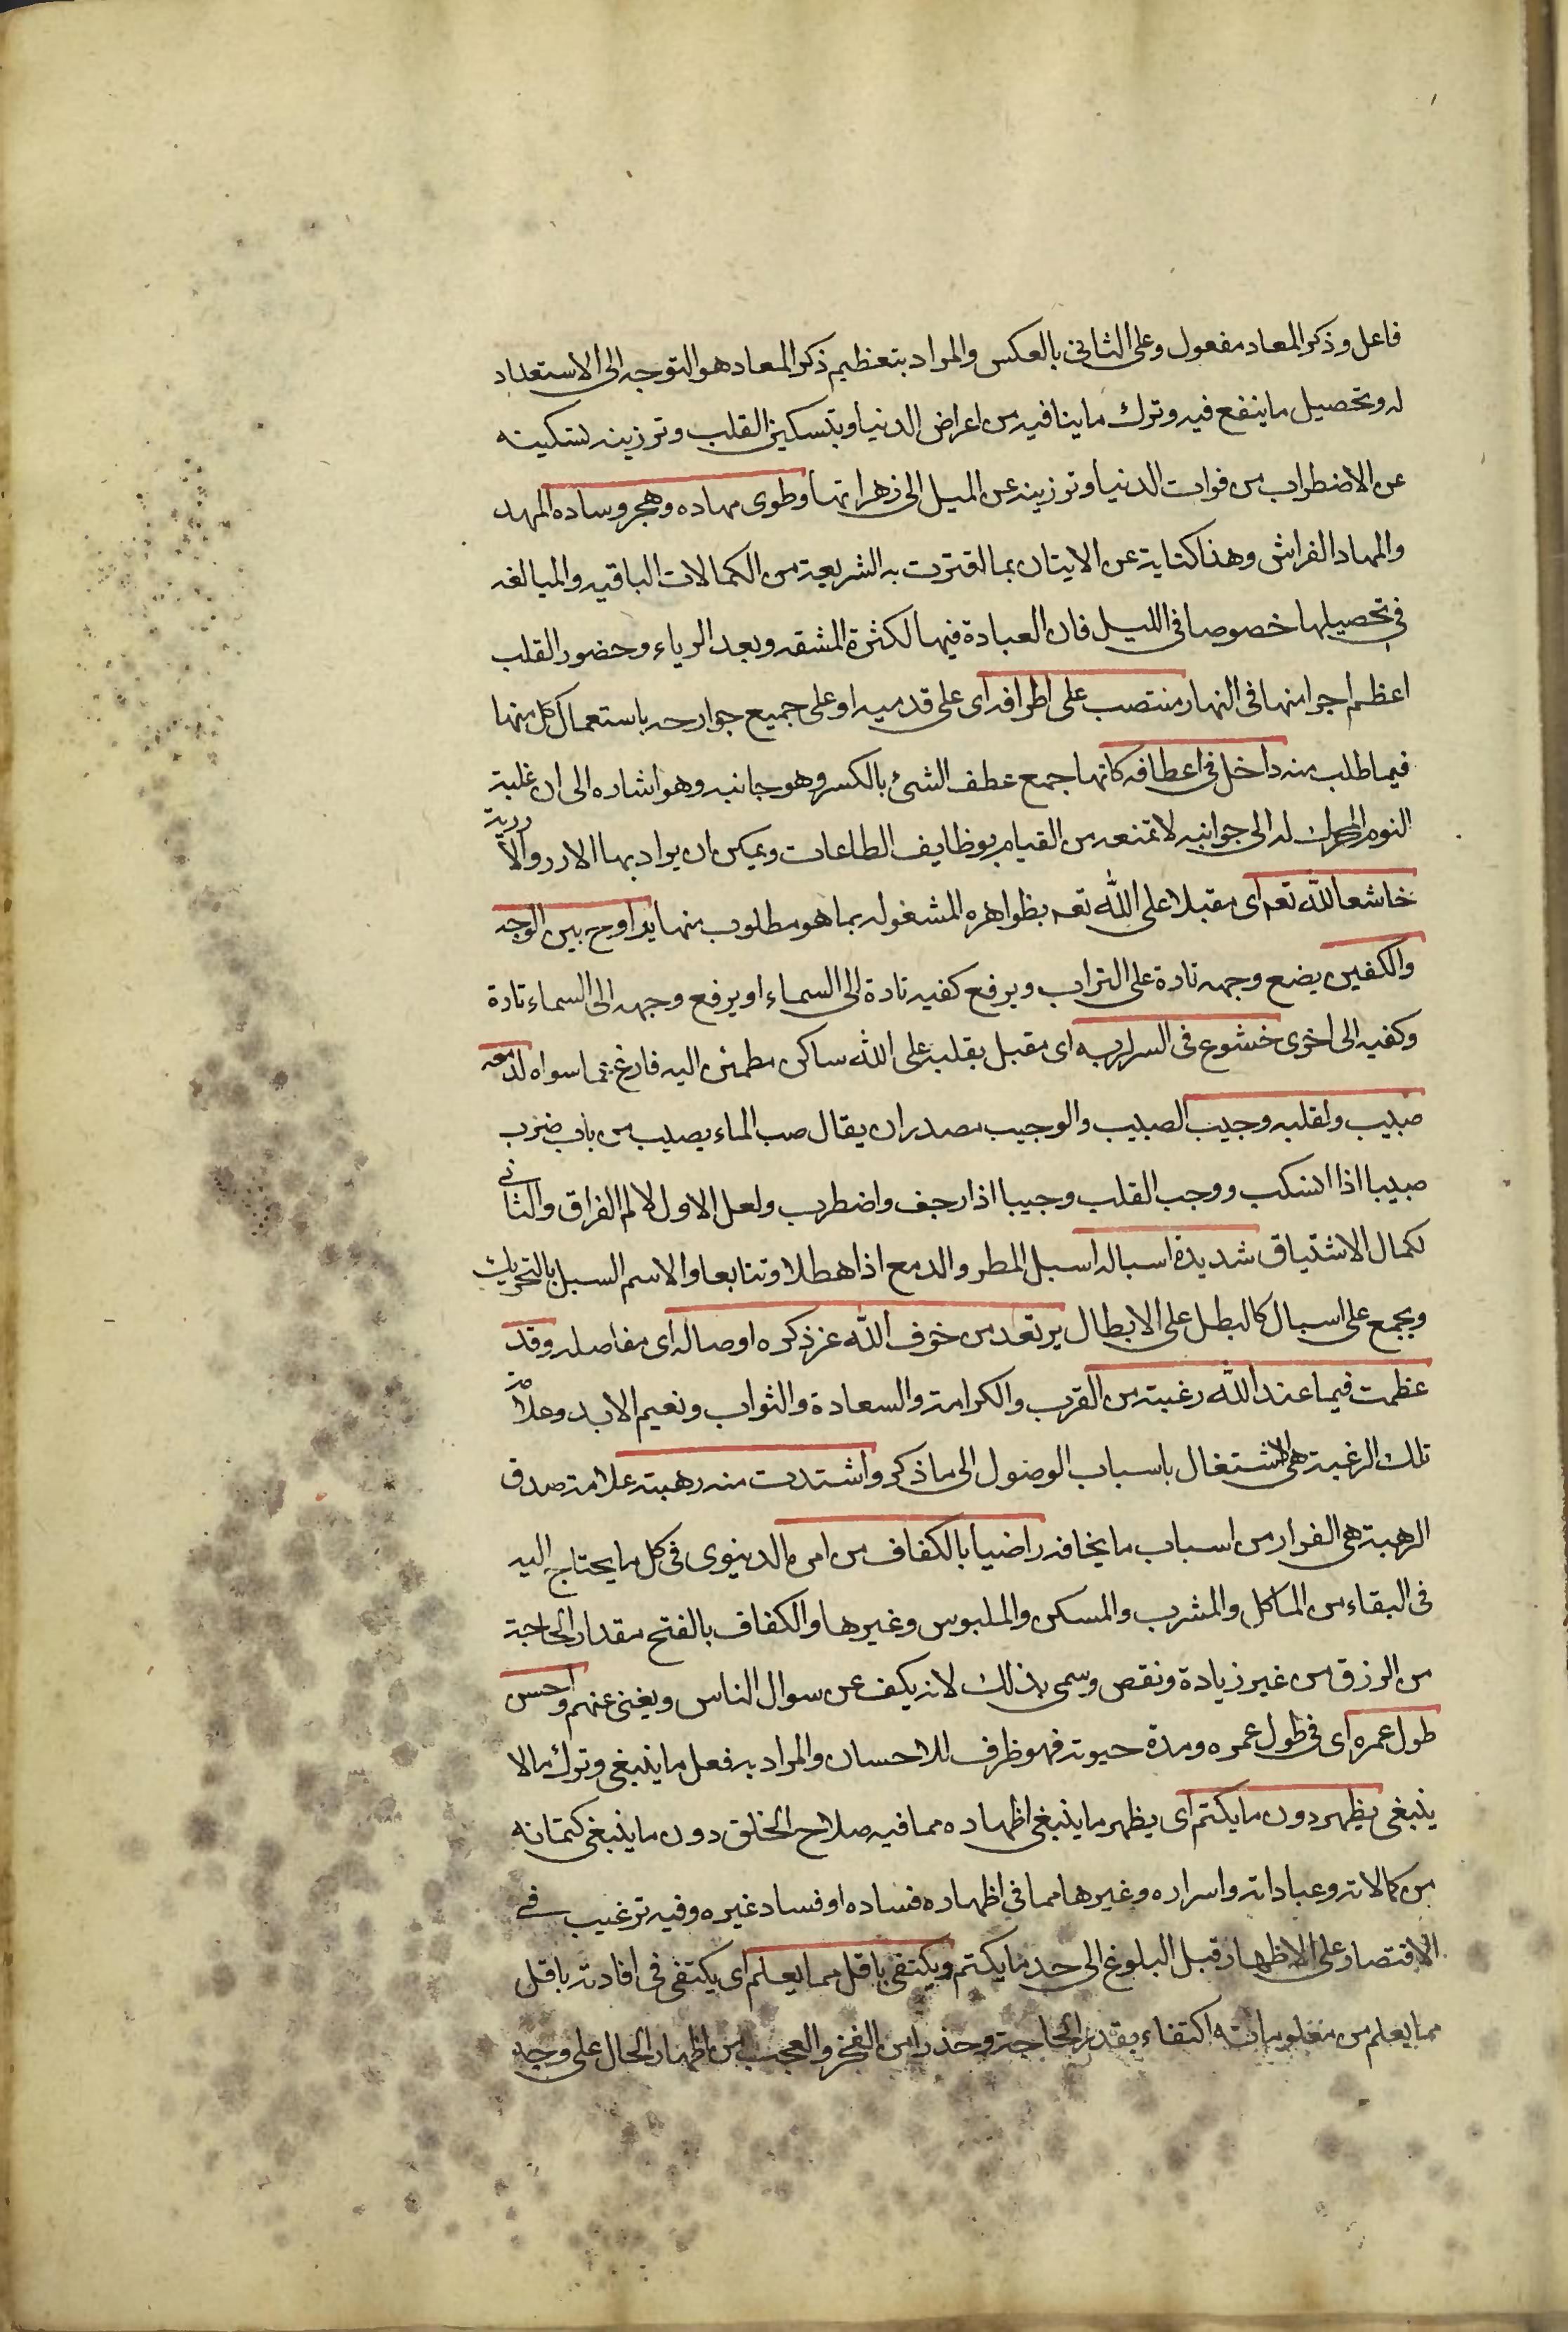 فاعل وذكر المعاد مفعول وعلى الثانى بالعكس والمراد بتعظيم ذكر المعاد هو التوجه الى الاستعداد
له وتحصيل ما ينفع فيه وترك ما ينافيه من اعراض الدنيا وبتسكين القلب وتوزينه تسكينه
عن الاضطراب من فوات الدنيا وتوزينه عن الميل الى زهراتها وطوى مهاده وهجر وساده المهد
والمهاد الفراش وهذا كناية عن الايتان بما اقترت به الشريعة من الكمالات الباقيه والمبالغه
فى تحصيلها خصوصا فى الليل فان العبادة فيها لكثرة المشقه وبعد الرياء وحضور القلب
اعظم اجرا منها فى النهار منتصب على اطرافه اى على قدميه او على جميع جوارحه باستعمال كل منها
فيما طلب منه داخل فى اعطافه كانها جمع عطف الشئ بالكسر وهو جانبه وهو اشاره الى ان غلبة
النوم المحرك له الى جوانبه لا تمنعه من القيام بوظايف الطاعات ويمكن ان يراد بها الازر والاردية
خاشعا لله تعه اى مقبلا على الله تعه بظواهره المشغوله بما هو مطلوب منها يراوح بين الوجه
والكفين يضع وجهه تارة على التراب ويرفع كفيه تارة الى السماء او يرفع وجهه الى السماء تارة
وكفيه الى اخرى خشوع فى السر لربه اى مقبل بقلبه على الله ساكن مطمئن اليه فارغ عما سواه لدمعه
صبيب ولقلبه وجيب الصبيب والوجيب مصدران يقال صب الماء يصبب من باب ضرب
صبيبا اذا انسكب ووجب القلب وجيبا اذا رجف واضطرب ولعل الاول لالم الفراق والثانى
لكمال الاشتياق شديدة اسباله اسبل المطر والدمع اذا هطلا وتتابعا والاسم السبل بالتحريك
ويجمع على اسبال كالبطل على الابطال يرتعد من خوف الله عز ذكره اوصاله اى مفاصله وقد
عظمت فيما عند الله رغبته من القرب والكرامة والسعادة والثواب ونعيم الابد وعلامة
تلك الرغبة هى الاشتغال باسباب الوصول الى ما ذكر واشتدت منه رهبته علامة صدق
الرهبة هى الفرار من اسباب ما يخافه راضيا بالكفاف من امره الدنيوى فى كل ما يحتاج اليه
فى البقاء من الماكل والمشرب والمسكن والملبوس وغيرها والكفاف بالفتح مقدار الحاجة
من الرزق من غير زيادة ونقص وسمى بذلك لانه يكف عن سوال الناس ويغنى عنهم واحسن
طول عمره اى فى طول عمره ومدة حيوته فهو ظرف للاحسان والمراد به فعل ما ينبغى وترك ما لا
ينبغى يظهر دون ما يكتم اى يظهر ما ينبغى اظهاره مما فيه صلاح الخلق دون ما ينبغى كتمانه
من كمالاته وعباداته واسراره وغيرها مما فى اظهاره فساده او فساد غيره وفيه ترغيب فى
الاقتصار على الاظهار قبل البلوغ الى حد ما يكتم ويكتفى باقل مما يعلم اى يكتفى فى افادته باقل
مما يعلم من معلوماته اكتفاء بقدر الحاجة وحذرا من الفخر والعجب من اظهار الحال على وجه